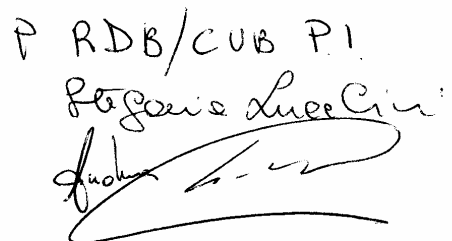 P RDB/CUB P.I.
Stefania Lucchini